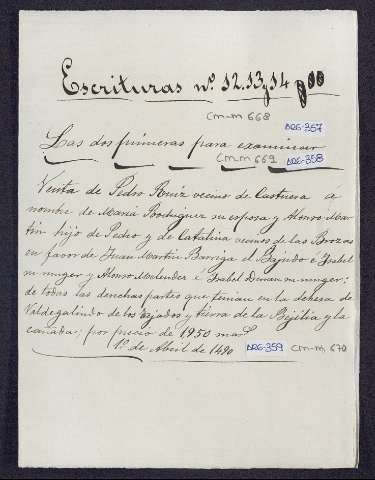 Escrituras nº. 12.13 y 14
CM-M 668
ARG-357
Las dos primeras para examinar
CM-M 669 ARG-358
Venta de Pedro Ruiz vecino de Castuera é
nombre de Maria Rodriguez su esposa y Alonso Mar-
tin hijo de Pedro y de Catalina vecinos de las Brozas
en favor de Juan Martin Barriga el Bajudo é Ysabel
su muger y Alonso Melendez é Ysabel Duran su muger:
de todas las derechas partes que tenian en la dehesa de
Valdegalindo de los ajados y tierra de la Bijilia y la
cañada; por precio de 1950 mars.
1º de Abril de 1490
ARG-359 CM-M, 670